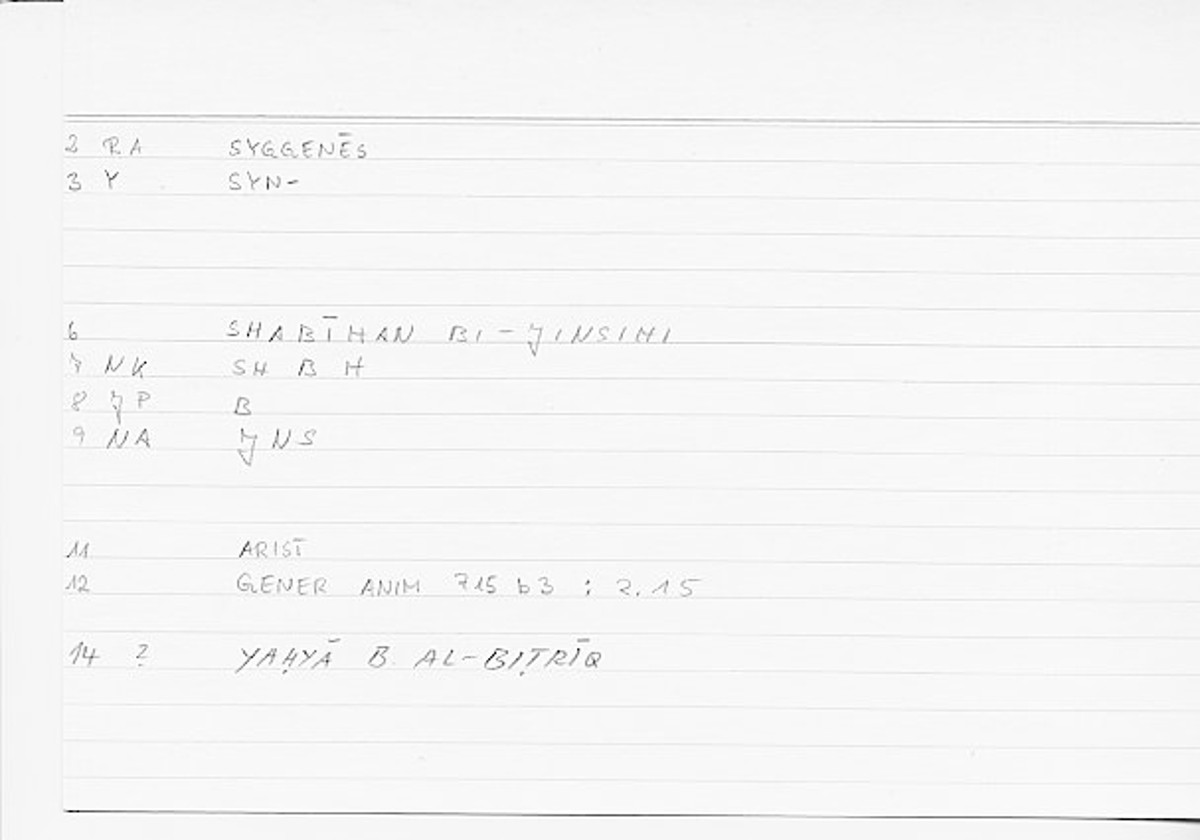 2 RA SYGGENĒS
3 Y SYN-
6 SHABĪHAN BI-JINSIHI
7 NK SH B H
8 JP B
9 NA JNS
11 ARIST
12 GENER ANIM 715 b3 : 2.15
14 ? YAḤYĀ B. AL-BIṬRĪQ